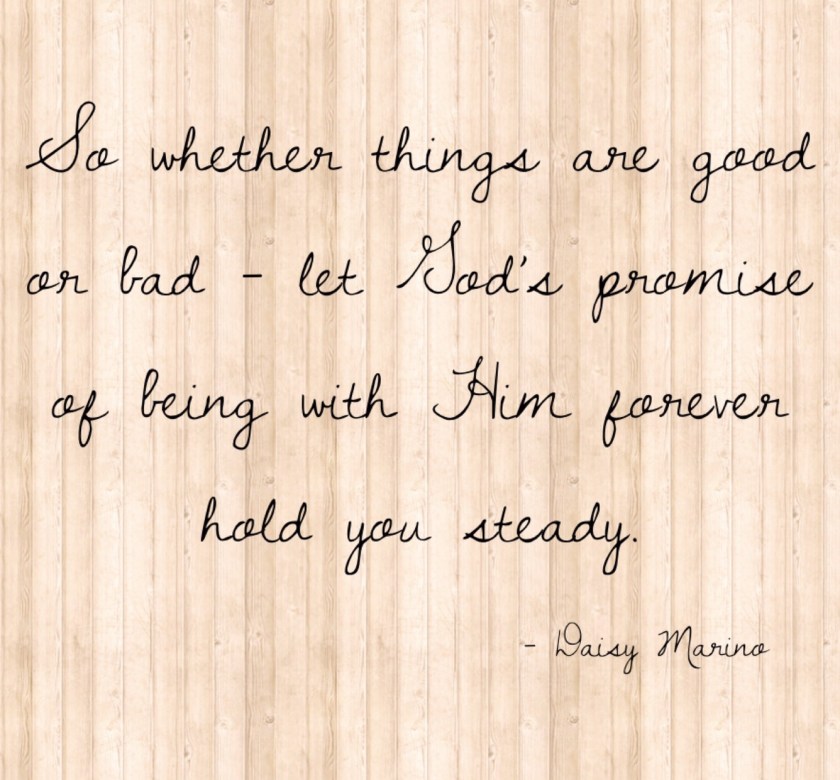 So whether things are good
or bad - let God's promise
of being with Him forever
hold you steady.
- Daisy Marino